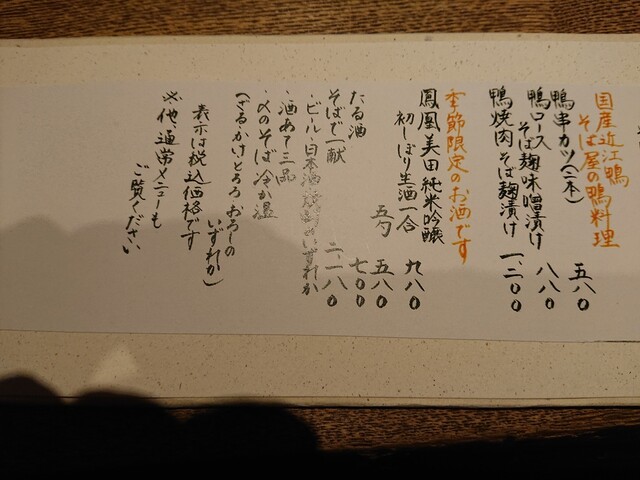 国産近江鴨
そば屋の鴨料理
鴨串カツ(二本) 五八〇
鴨ロース
そば麹味噌漬け 八八〇
鴨焼肉そば麹漬け 一、二〇〇
季節限定のお酒です
鳳凰美田純米吟醸
初しぼり生酒一合 九八〇
五勺 五八〇
たる酒 七〇〇
そばで一献 二、一八〇
・ビール・日本酒・焼酎のいずれか
・酒あて三品
・〆のそば冷か温
(ざるかけとろろおろしの
いずれか)
表示は税込価格です
※他、通常メニューも
ご覧ください